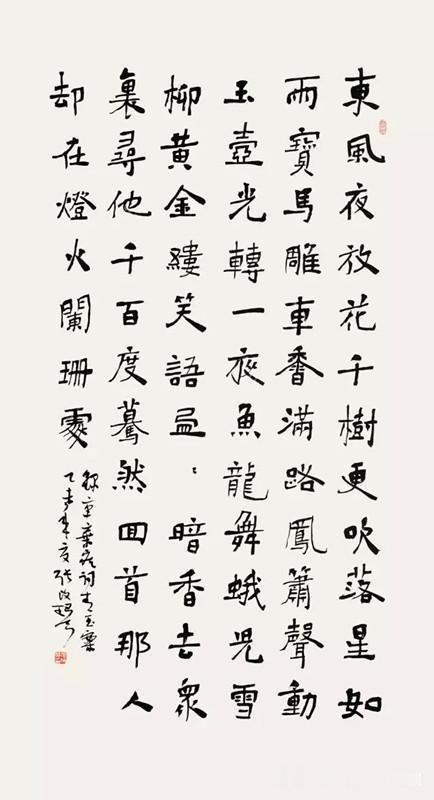 東風夜放花千樹更吹落星如
雨寶馬雕車香滿路鳳簫聲動
玉壺光轉一夜魚龍舞蛾兒雪
柳黄金縷笑語盈、暗香去衆
裏尋他千百度驀然回首那人
却在燈火闌珊處
錄辛棄疾詞青玉案
乙未年夏張改琴